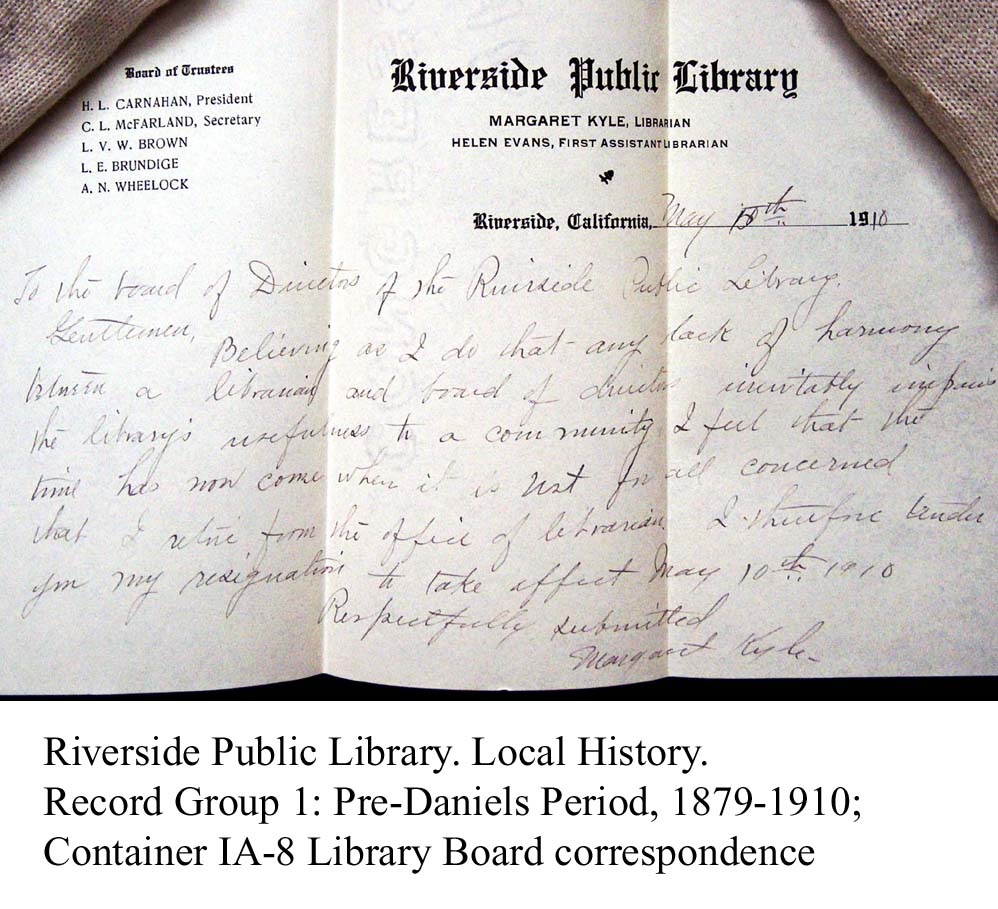 Board of Trustees
H. L. CARNAHAN, President
C. L. McFARLAND, Secretary
L. V. W. BROWN
L. E. BRUNDIGE
A. N. WHEELOCK
Riverside Public Library
MARGARET KYLE, LIBRARIAN
HELEN EVANS, FIRST ASSISTANT LIBRARIAN
Riverside, California, May 10th 1910
To the board of Directors of the Riverside Public Library.
Gentlemen,
Believing as I do that any lack of harmony
between a librarian and board of directors inevitably impairs
the library's usefulness to a community I feel that the
time has now come when it is best for all concerned
that I retire from the office of librarian. I therefore tender
you my resignation to take effect May 10th 1910
Respectfully submitted
Margaret Kyle
Riverside Public Library. Local History.
Record Group 1: Pre-Daniels Period, 1879-1910;
Container IA-8 Library Board correspondence